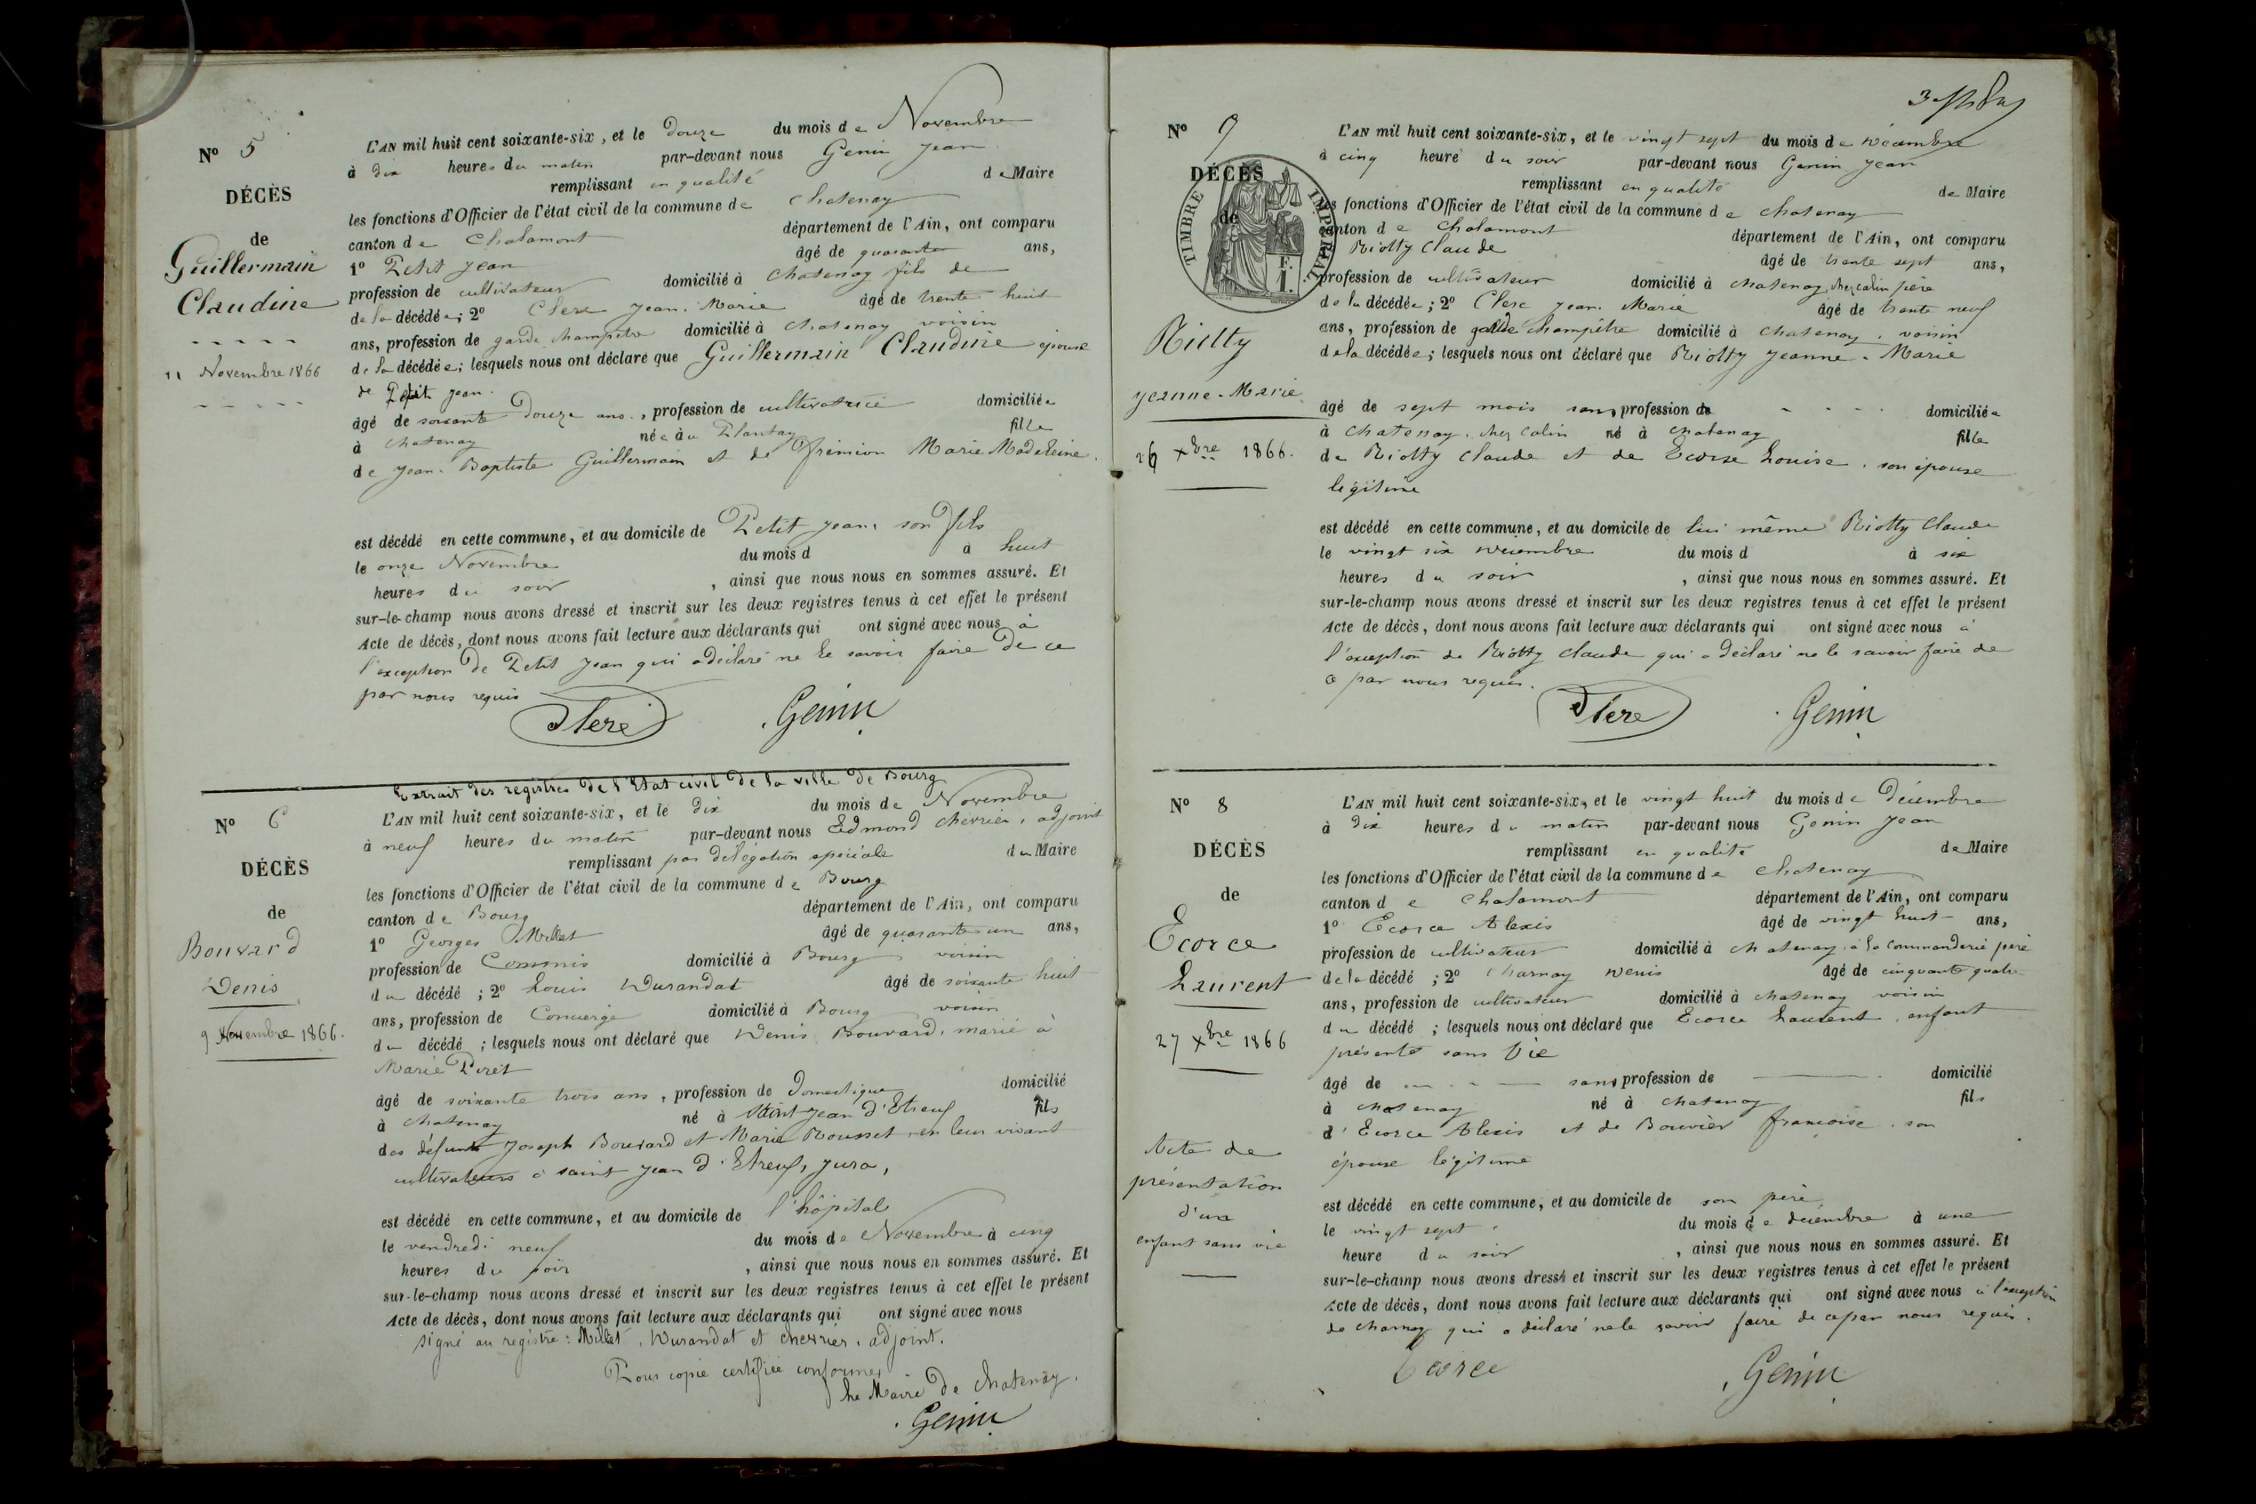 N° 5
DÉCÈS
de
Guillermain
Claudine
11 Novembre 1866
L'AN mil huit cent soixante-six, et le douze du mois de Novembre
à dix heures du matin par-devant nous Genin Jean
remplissant en qualité de Maire
les fonctions d'Officier de l'état civil de la commune de Chatenay
canton de Chalamont département de l'Ain, ont comparu
1° Petit Jean âgé de quarante ans,
profession de cultivateur domicilié à Chatenay fils de
de la décédée; 2° Clerc Jean-Marie âgé de trente huit
ans, profession de garde champêtre domicilié à Chatenay voisin
de la décédée; lesquels nous ont déclaré que Guillermain Claudine épouse
de Petit Jean.
âgé de soixante douze ans, profession de cultivatrice domiciliée
à Chatenay née au Plantay fille
de Jean-Baptiste Guillermain et de Marie Madeleine.
est décédé en cette commune, et au domicile de Petit Jean, son fils
le onze Novembre du mois d à huit
heures du soir, ainsi que nous nous en sommes assuré. Et
sur-le-champ nous avons dressé et inscrit sur les deux registres tenus à cet effet le présent
Acte de décès, dont nous avons fait lecture aux déclarants qui ont signé avec nous à
l'exception de Petit Jean qui a déclaré ne le savoir faire de ce
par nous requis
Genin
Extrait des registres de l'Etat civil de la ville de Bourg
N° 6
DÉCÈS
de
Bouvard
Denis
9 Novembre 1866.
L'AN mil huit cent soixante-six, et le dix du mois de Novembre
à neuf heures du matin par-devant nous Edmond Chevrier, adjoint
remplissant par délégation spéciale du Maire
les fonctions d'Officier de l'état civil de la commune de Bourg
canton de Bourg département de l'Ain, ont comparu
1° Georges Millet âgé de quarante un ans,
profession de Commis domicilié à Bourg voisin
du décédé; 2° Louis Durandat âgé de soixante huit
ans, profession de Concierge domicilié à Bourg voisin
du décédé; lesquels nous ont déclaré que Denis Bouvard, marié à
Marie Piret
âgé de soixante trois ans, profession de Domestique domicilié
à Chatenay né à Saint Jean d'Etreuf fils
des défunts Joseph Bouvard et Marie Rousset, en leur vivant
cultivateurs à saint Jean d'Etreuf, Jura,
est décédé en cette commune, et au domicile de l'hôpital
le vendredi neuf du mois de Novembre à cinq
heures du soir, ainsi que nous nous en sommes assuré. Et
sur-le-champ nous avons dressé et inscrit sur les deux registres tenus à cet effet le présent
Acte de décès, dont nous avons fait lecture aux déclarants qui ont signé avec nous
signé au registre: Millet, Durandat et Chevrier, adjoint.
Pour copie certifiée conforme,
Le Maire de Chatenay.
Genin
N° 7
DÉCÈS
de
TIMBRE IMPÉRIAL
F.
1.
Riotty
Jeanne-Marie
26 Xbre 1866.
L'AN mil huit cent soixante-six, et le vingt sept du mois de Décembre
à cinq heure du soir par-devant nous Genin Jean
remplissant en qualité de Maire
les fonctions d'Officier de l'état civil de la commune de Chatenay
canton de Chalamont département de l'Ain, ont comparu
Riotty Claude âgé de trente sept ans,
profession de cultivateur domicilié à Chatenay chez Colin père
de la décédée; 2° Clerc Jean Marie âgé de trente neuf
ans, profession de garde champêtre domicilié à Chatenay, voisin
de la décédée; lesquels nous ont déclaré que Riotty Jeanne-Marie
âgé de sept mois sans profession de domiciliée
à Chatenay, chez Colin né à Chatenay fille
de Riotty Claude et de Ecorce Louise, son épouse
légitime
est décédé en cette commune, et au domicile de lui même Riotty Claude
le vingt six Décembre du mois d à six
heures du soir, ainsi que nous nous en sommes assuré. Et
sur-le-champ nous avons dressé et inscrit sur les deux registres tenus à cet effet le présent
Acte de décès, dont nous avons fait lecture aux déclarants qui ont signé avec nous à
l'exception de Riotty Claude qui a déclaré ne le savoir faire de
ce par nous requis.
Genin
N° 8
DÉCÈS
de
Ecorce
Laurent
27 Xbre 1866
Acte de
présentation
d'un
enfant sans vie
L'AN mil huit cent soixante-six, et le vingt huit du mois de Décembre
à dix heures du matin par-devant nous Genin Jean
remplissant en qualité de Maire
les fonctions d'Officier de l'état civil de la commune de Chatenay
canton de Chalamont département de l'Ain, ont comparu
1° Ecorce Alexis âgé de vingt huit ans,
profession de cultivateur domicilié à Chatenay, à la Commanderie père
de la décédé; 2° Charnay Denis âgé de cinquante quatre
ans, profession de cultivateur domicilié à Chatenay voisin
du décédé; lesquels nous ont déclaré que Ecorce Laurent, enfant
présenté sans vie
âgé de sans profession de domicilié
à Chatenay né à Chatenay fils
d'Ecorce Alexis et de Bouvier Françoise, son
épouse légitime
est décédé en cette commune, et au domicile de son père
le vingt sept du mois de décembre à une
heure du soir, ainsi que nous nous en sommes assuré. Et
sur-le-champ nous avons dressé et inscrit sur les deux registres tenus à cet effet le présent
Acte de décès, dont nous avons fait lecture aux déclarants qui ont signé avec nous à l'exception
de Charnay qui a déclaré ne le savoir faire de ce par nous requis.
Ecorce Genin